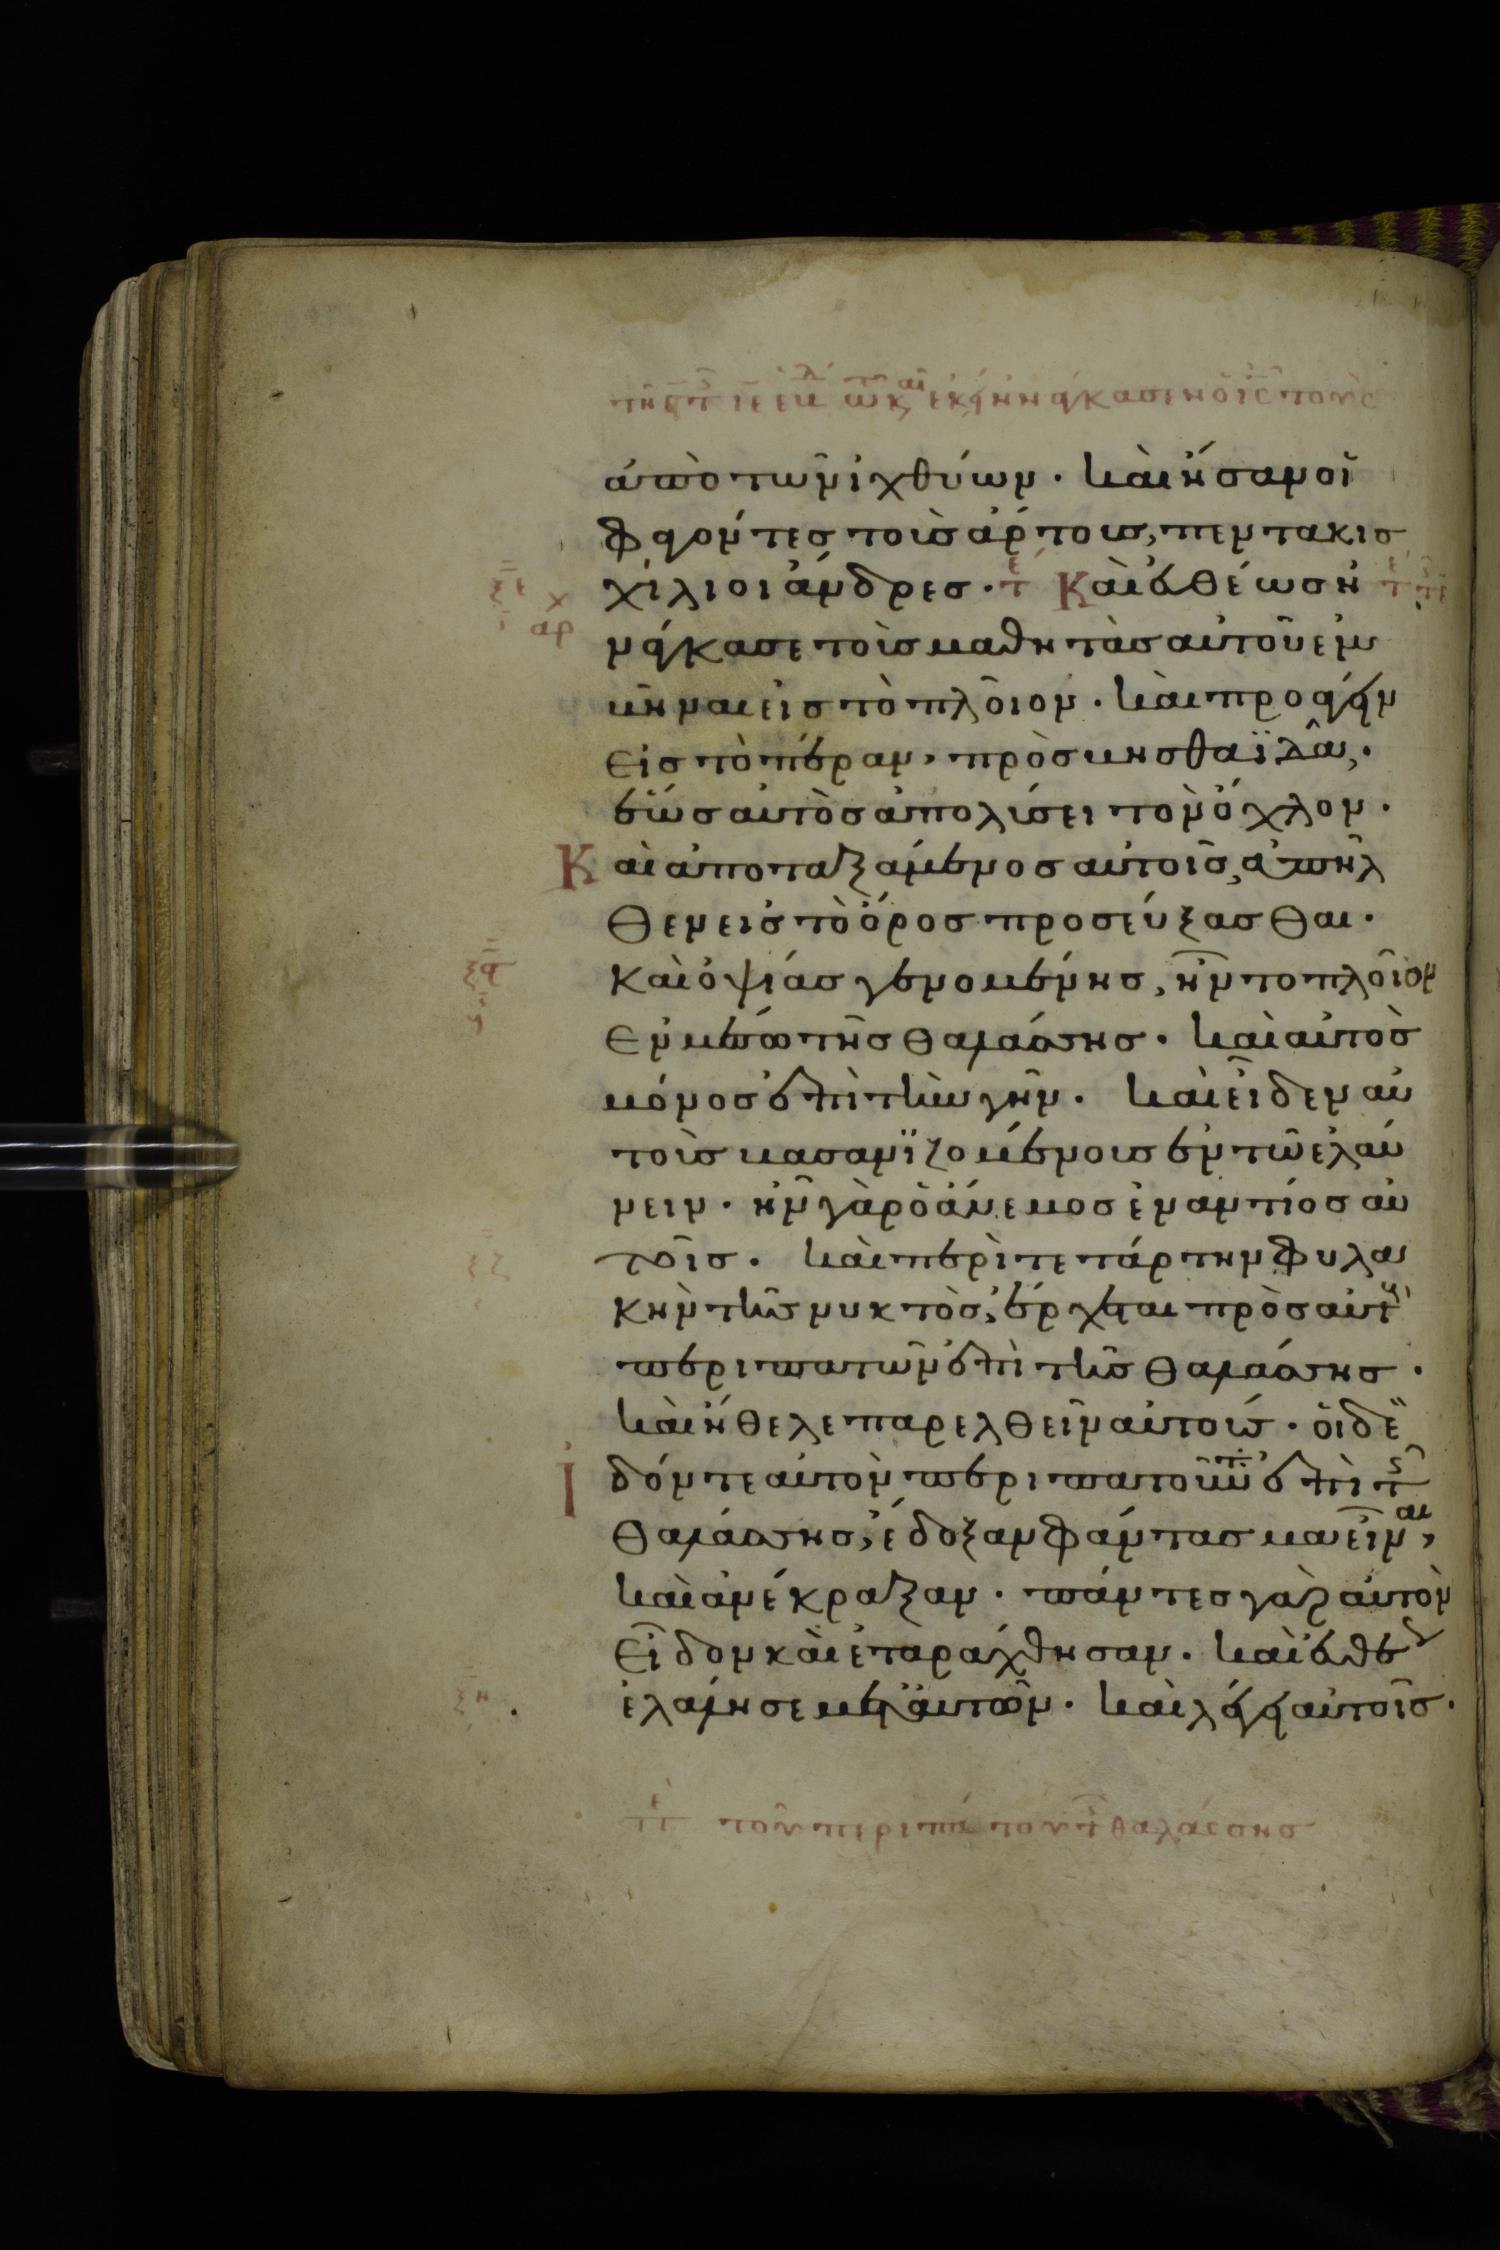 τω κ αι εκ ηνάγκασεν ὁ ι̅ς̅ τοὺς
ἀπὸ τῶν ἰχθύων · καὶ ἦσαν οἱ
φαγόντες τοὺς ἄρτους, πεντακισ
χίλιοι ἄνδρες · τε Καὶ εὐθέως ἠ
ξε
αρχ
νάγκασε τοὺς μαθητὰς αὐτοῦ ἐμ
βῆναι εἰς τὸ πλοῖον · καὶ προάγειν
εἰς τὸ πέραν, πρὸς βηθσαϊδὰ, ·
ἕως αὐτὸς ἀπολύσει τὸν ὄχλον ·
Καὶ ἀποταξάμενος αὐτοῖς, ἀπῆλ
θεν εἰς τὸ ὄρος προσεύξασθαι ·
ξϛ
καὶ ὀψίας γενομένης, ἦν το πλοῖον
ἐν μέσω τῆς θαλάσσης · καὶ αὐτὸς
μόνος ἐπὶ τὴν γῆν · καὶ εἶδεν αὐ
τοὺς βασανϊζομένους ἐν τῶ ἐλαύ
νειν · ἦν γὰρ ὁ ἄνεμος ἐναντίος αὐ
ξζ
τοῖς · καὶ περὶ τετάρτην φυλα
κὴν τῆς νυκτὸς, ἔρχεται πρὸς αὐτ
περιπατῶν ἐπὶ τῆς θαλάσσης ·
καὶ ἤθελε παρελθεῖν αὐτούς · οἱ δὲ
ἰδόντε αὐτὸν περιπατοῦντ ἐπὶ τ
θαλάσσης, ἔδοξαν φάντασμα εἶναι,
καὶ ἀνέκραξαν · πάντες γὰρ αὐτὸν
εἶδον καὶ ἐταράχθησαν · καὶ εὐθέ
ξη
ἐλάλησε μετ αὐτῶν · καὶ λέγει αὐτοῖς ·
τοῦ περιπάτου τ θαλάσσης